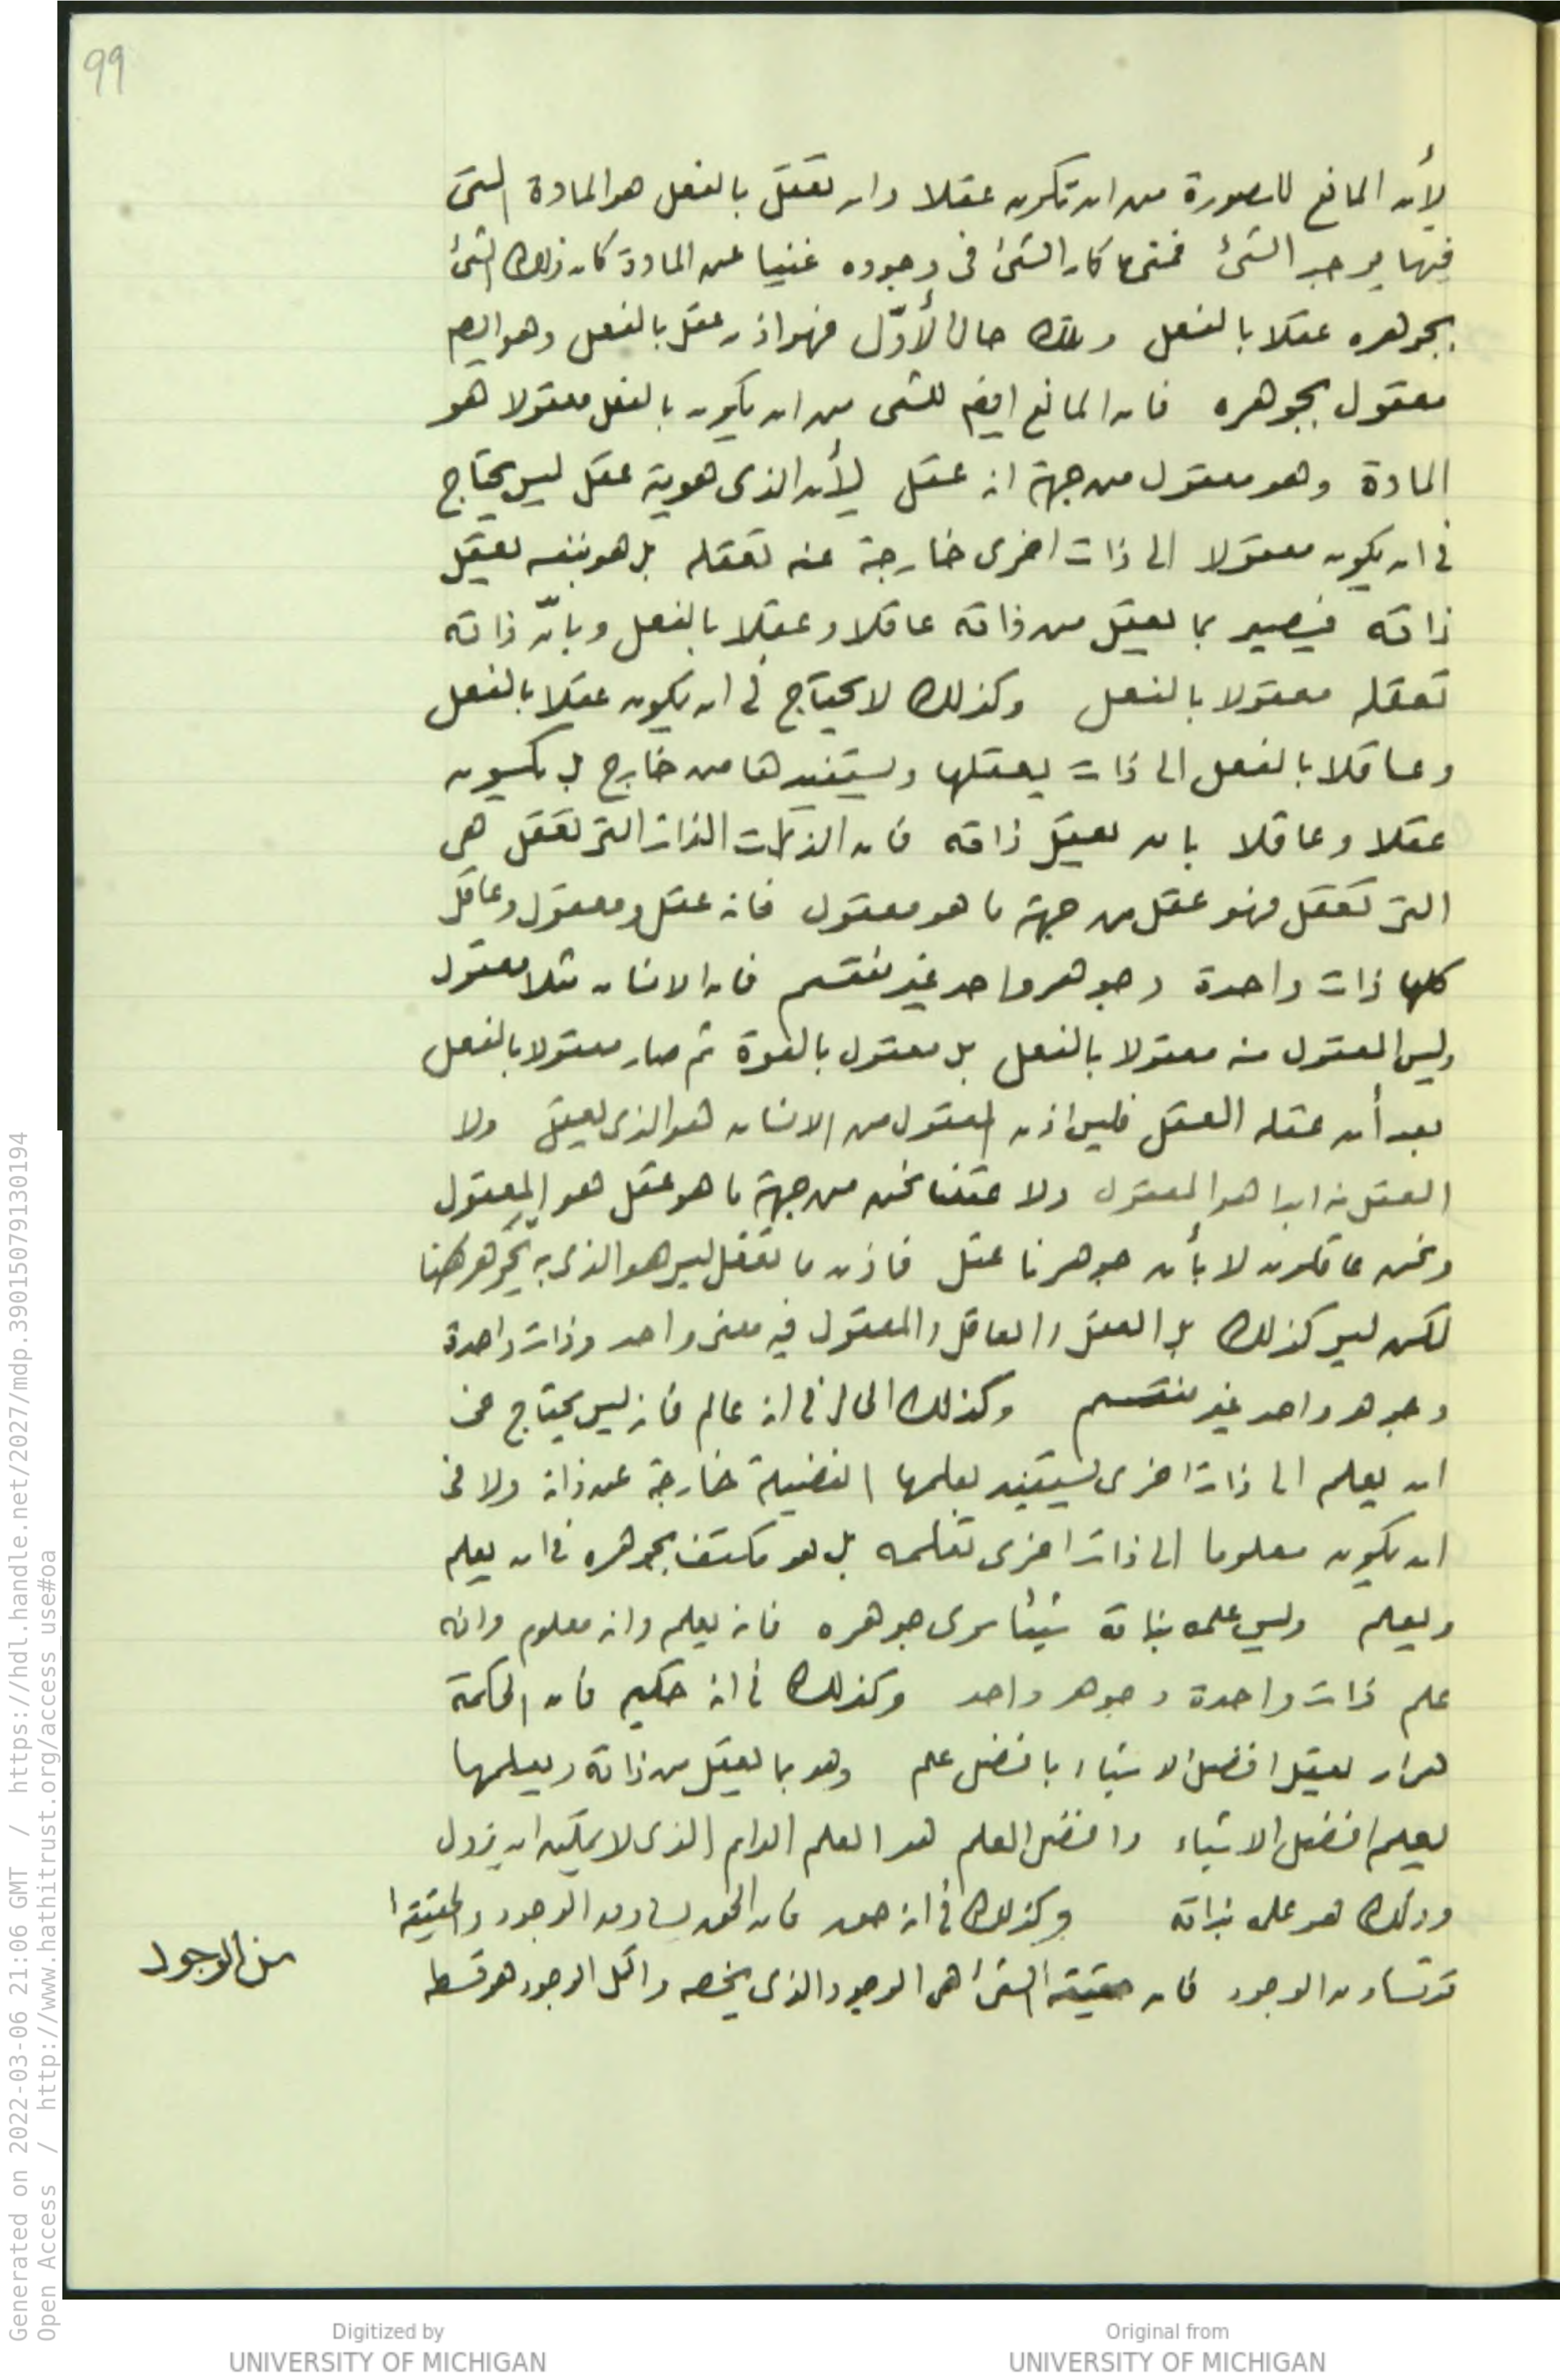 99
لأن المانع للصورة من ان تكون عقلا وان تعقل بالفعل هو المادة التى
فيها يوجد الشئ فمتى كان الشئ فى وجوده غنيا عن المادة كان ذلك الشئ
بجوهره عقلا بالفعل وتلك حال الأوّل فهو اذن عقل بالفعل وهو ايضم
معقول بجوهره فان المانع ايضم للشى من ان يكون بالفعل معقولا هو
المادة وهو معقول من جهة انه عقل لأن الذى هويته عقل ليس يحتاج
فى ان يكون معقولا الى ذات اخرى خارجة عنه تعقله بل هو بنفسه يعقل
ذاته فيصير بما يعقل من ذاته عاقلا وعقلا بالفعل وبانّ ذاته
تعقله معقولا بالفعل وكذلك لا يحتاج فى ان يكون عقلا بالفعل
وعاقلا بالفعل الى ذات يعقلها ويستفيدها من خارج بل يكون
عقلا وعاقلا بان يعقل ذاته فان الذات التى تعقل هى
التى تعقل فهو عقل من جهة ما هو معقول فانه عقل ومعقول وعاقل
كلها ذات واحدة وجوهر واحد غير منقسم فان الانسان مثلا معقول
وليس المعقول منه معقولا بالفعل بل معقول بالقوة ثم صار معقولا بالفعل
بعد أن عقله العقل فليس اذن المعقول من الانسان هو الذى يعقل ولا
العقل منه ابدا هو المعقول ولا عقلنا نحن من جهة ما هو عقل هو المعقول
ونحن عاقلون لا بأن جوهرنا عقل فاذن ما نعقل ليس هو الذى به تجوهرنا
لكن ليس كذلك بل العقل والعاقل والمعقول فيه معنى واحد وذات واحدة
وجوهر واحد غير منقسم وكذلك الحال فى انه عالم فانه ليس يحتاج فى
ان يعلم الى ذات اخرى يستفيد بعلمها الفضيلة خارجة عن ذاته ولا فى
ان يكون معلوما الى ذات اخرى تعلمه بل هو مكتف بجوهره فى ان يعلم
ويعلم وليس علمه بذاته شيئا سوى جوهره فانه يعلم وانه معلوم وانه
علم ذات واحدة وجوهر واحد وكذلك فى انه حكيم فان الحكمة
هى ان يعقل افضل الاشياء بافضل علم وهو بما يعقل من ذاته ويعلمها
يعلم افضل الاشياء وافضل العلم هو العلم الدايم الذى لا يمكن ان يزول
وذلك هو علمه بذاته وكذلك فى انه حق فان الحق يساوق الوجود والحقيقة
قد تساوق الوجود فان حقيقة الشئ هى الوجود الذى يخصه واكمل الوجود هو قسطه
من الوجود
Generated on 2022-03-06 21:06 GMT / https://hdl.handle.net/2027/mdp.39015079130194
Open Access / http://www.hathitrust.org/access_use#oa
Digitized by
UNIVERSITY OF MICHIGAN
Original from
UNIVERSITY OF MICHIGAN